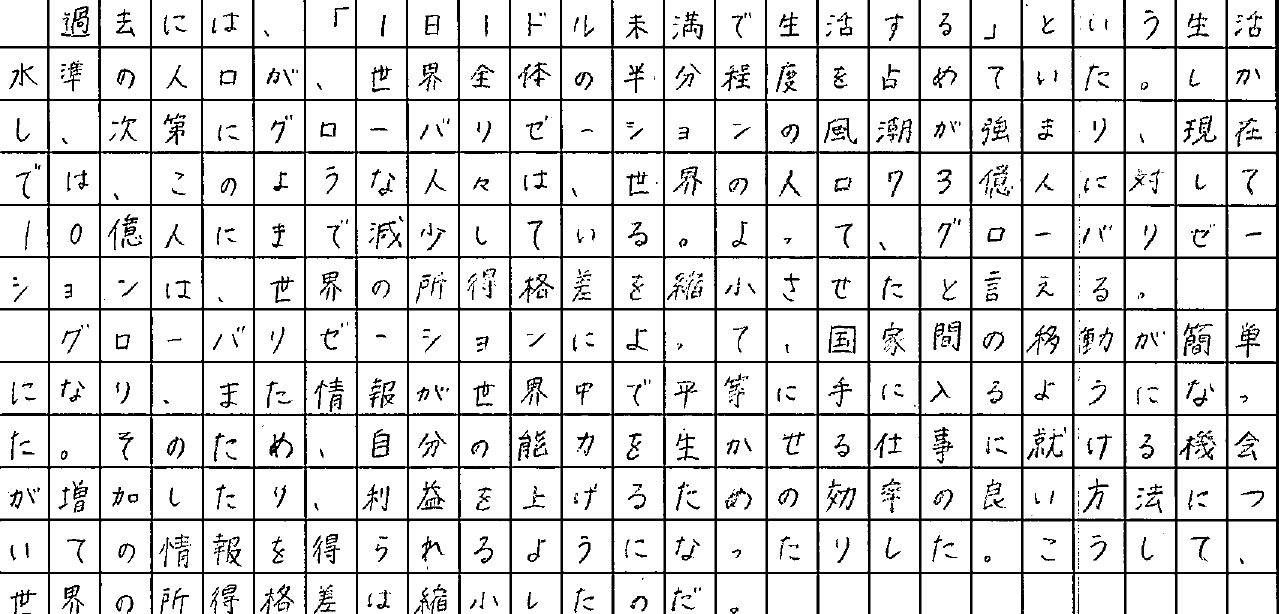 過去には、「1日1ドル未満で生活する」という生活
水準の人口が、世界全体の半分程度を占めていた。しか
し、次第にグローバリゼーションの風潮が強まり、現在
では、このような人々は、世界の人口73億人に対して
10億人にまで減少している。よって、グローバリゼー
ションは、世界の所得格差を縮小させたと言える。
　グローバリゼーションによって、国家間の移動が簡単
になり、また情報が世界中で平等に手に入るようになっ
た。そのため、自分の能力を生かせる仕事に就ける機会
が増加したり、利益を上げるための効率の良い方法につ
いての情報を得られるようになったりした。こうして、
世界の所得格差は縮小したのだ。